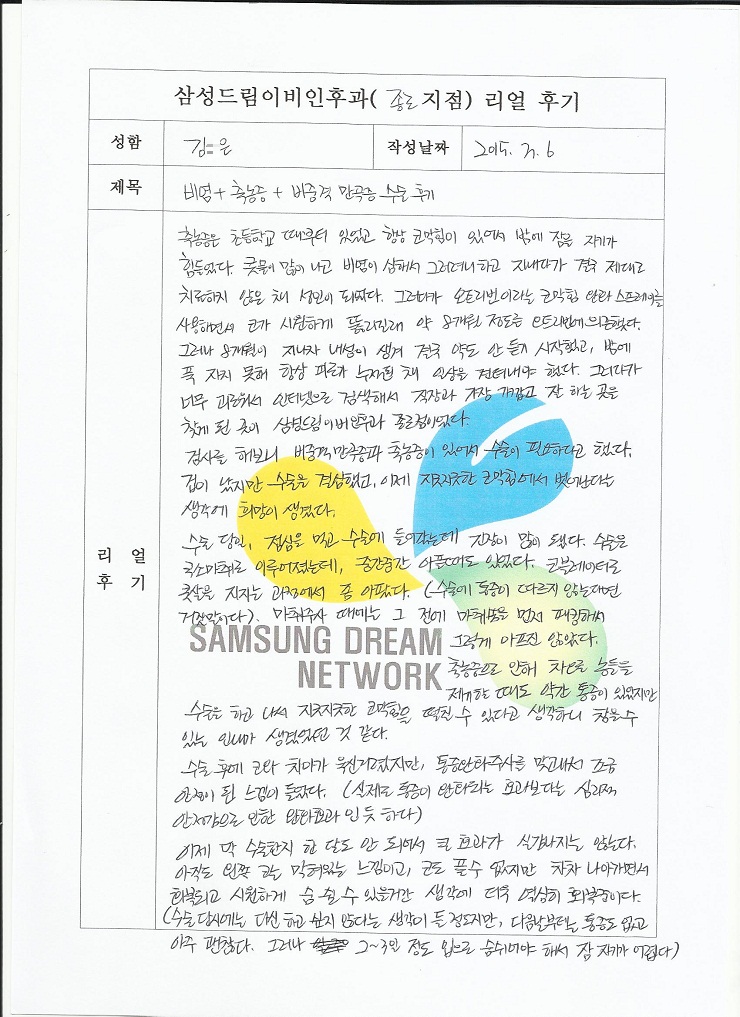 삼성드림이비인후과( 종로 지점) 리얼 후기
성함
김 은
작성날짜
2015. 7. 6
제목
비염+ 축농증 + 비중격 만곡증 수술 후기
리 얼
후 기
축농증은 초등학교 때부터 있었고 항상 코막힘이 있어서 밤에 잠을 자기가
힘들었다. 콧물이 많이 나고 비염이 심해서 그러려니하고 지내다가 결국 제대로
치료하지 않은 채 성인이 되었다. 그러다가 오트리빈이라는 코막힘 완화 스프레이를
사용하면서 코가 시원하게 뚫리길래 약 8개월 정도를 오트리빈에 의존했다.
그러나 8개월이 지나자 내성이 생겨 결국 약도 안 듣기 시작했고, 밤에
푹 자지 못해 항상 피로가 누적된 채 일상을 견뎌내야 했다. 그러다가
너무 괴로워서 인터넷으로 검색해서 직장과 가장 가깝고 잘 하는 곳을
찾게 된 곳이 삼성드림이비인후과 종로점이었다.
검사를 해보니 비중격만곡증과 축농증이 있어서 수술이 필요하다고 했다.
겁이 났지만 수술을 결심했고, 이제 지긋지긋한 코막힘에서 벗어난다는
생각에 희망이 생겼다.
수술 당일, 점심을 먹고 수술에 들어갔는데 긴장이 많이 됐다. 수술은
국소마취로 이루어졌는데, 중간중간 아플때도 있었다. 코블레이터로
콧살을 지지는 과정에서 좀 아팠다. (수술에 통증이 따르지 않는다면
거짓말이다). 마취주사 때에는 그 전에 마취솜을 먼저 패킹해서
그렇게 아프진 않았다.
SAMSUNG DREAM
NETWORK
축농증으로 인해 차오른 농들을
제거할 때도 약간 통증이 있었지만
수술을 하고 나서 지긋지긋한 코막힘을 떨칠 수 있다고 생각하니 참을수
있는 인내가 생겼었던 것 같다.
수술 후에 코와 치아가 욱신거렸지만, 통증완화주사를 맞고나서 조금
안정이 된 느낌이 들었다. (실제로 통증이 완화되는 효과보다는 심리적
안정감으로 인한 완화효과 인 듯 하다)
이제 막 수술한지 한 달도 안 되어서 큰 효과가 실감나지는 않는다.
아직도 왼쪽 코는 막혀있는 느낌이고, 코도 풀수 없지만 차차 나아가면서
회복되고 시원하게 숨 쉴 수 있을거란 생각에 더욱 열심히 회복중이다.
(수술 당시에는 다신 하고 싶지 않다는 생각이 들 정도지만, 다음날부터는 통증도 없고
아주 괜찮다. 그러나 2~3일 정도 입으로 숨쉬어야 해서 잠 자기가 어렵다)